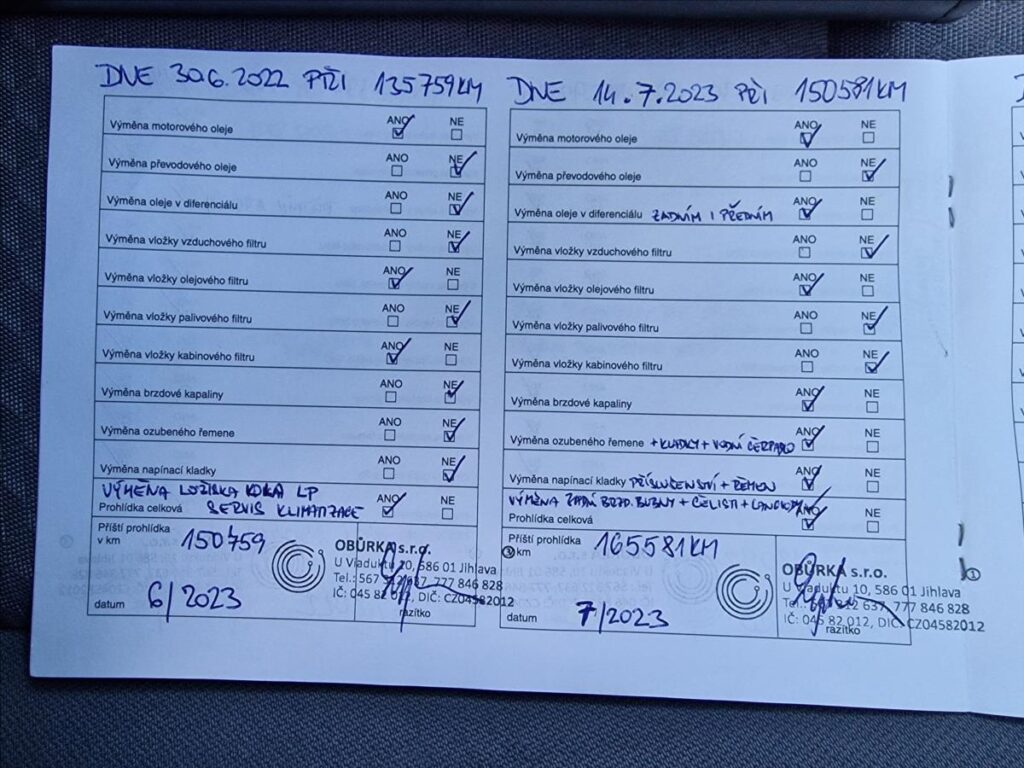 DNE 30.6.2022 PŘI 135759KM
ANO NE
Výměna motorového oleje
ANO NE
Výměna převodového oleje
ANO NE
Výměna oleje v diferenciálu
ANO NE
Výměna vložky vzduchového filtru
ANO NE
Výměna vložky olejového filtru
ANO NE
Výměna vložky palivového filtru
ANO NE
Výměna vložky kabinového filtru
ANO NE
Výměna brzdové kapaliny
ANO NE
Výměna ozubeného řemene
ANO NE
Výměna napínací kladky
VÝMĚNA LOŽISKA KOLA LP
ANO NE
Prohlídka celková SERVIS KLIMATIZACE
Příští prohlídka
v km
150759
datum 6/2023
OBŮRKA s.r.o.
U Viaduktu 10, 586 01 Jihlava
Tel.: 567 637, 777 846 828
IČ: 045 82 012, DIČ: CZ04582012
razítko
DNE 14.7.2023 PŘI 150581KM
ANO NE
Výměna motorového oleje
ANO NE
Výměna převodového oleje
ANO NE
Výměna oleje v diferenciálu ZADNÍM I PŘEDNÍM
ANO NE
Výměna vložky vzduchového filtru
ANO NE
Výměna vložky olejového filtru
ANO NE
Výměna vložky palivového filtru
ANO NE
Výměna vložky kabinového filtru
ANO NE
Výměna brzdové kapaliny
ANO NE
Výměna ozubeného řemene +KLADKY+VODNÍ ČERPADLO
ANO NE
Výměna napínací kladky PŘÍSLUŠENSTVÍ + ŘEMEN
VÝMĚNA ZADNÍ BRZD. BUBNY + ČELISTI + LANKO
ANO NE
Prohlídka celková
Příští prohlídka
v km
165581KM
datum 7/2023
OBŮRKA s.r.o.
U Viaduktu 10, 586 01 Jihlava
Tel.: 637, 777 846 828
IČ: 045 82 012, DIČ: CZ04582012
razítko